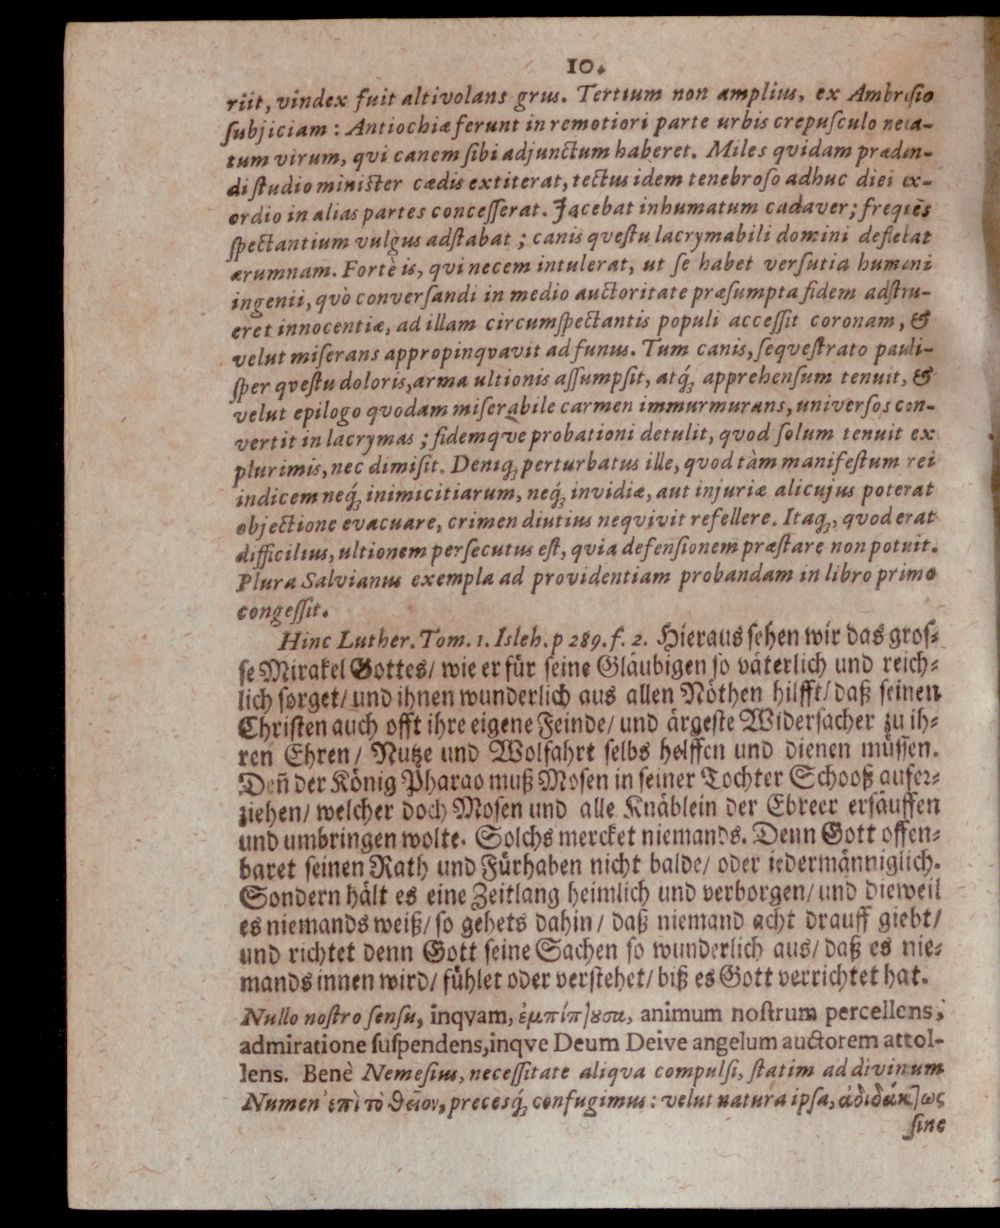 10.
riit, vindex fuit altivolans grus. Tertium non amplius, ex Ambrosio
ſubjiciam : Antiochiæ ferunt in remotiori parte urbis crepuſculo neca-
tum virum, qui canem ſibi adjunctum haberet. Miles quidam prædan-
di ſtudio miniſter cædis extiterat, tectus idem tenebroſo adhuc diei ex-
ordio in alias partes conceſſerat. Jacebat inhumatum cadaver; frequẽs
ſpectantium vulgus adſtabat ; canis queſtu lacrymabili domini deflebat
ærumnam. Fortè is, qui necem intulerat, ut ſe habet verſutia humani
ingenii, quò converſandi in medio auctoritate præſumpta fidem adſtru-
eret innocentiæ, ad illam circumſpectantis populi acceſſit coronam, &
velut miſerans appropinqvavit ad funus. Tum canis, ſequeſtrato pauli-
ſper qveſtu doloris, arma ultionis aſſumpſit, atq́; apprehenſum tenuit, &
velut epilogo quodam miſerabile carmen immurmurans, univerſos con-
vertit in lacrymas ; fidemqve probationi detulit, quod ſolum tenuit ex
plurimis, nec dimiſit. Deniq; perturbatus ille, quod tàm manifeſtum rei
indicem neq́; inimicitiarum, neq́; invidiæ, aut injuriæ alicujus poterat
objectione evacuare, crimen diutius neqvivit refellere. Itaq;, quod erat
difficilius, ultionem perſecutus eſt, qvia defenſionem præſtare non potuit.
Plura Salvianus exempla ad providentiam probandam in libro primo
congeſſit.
Hinc Luther. Tom. 1. Isleh. p 289. f. 2. Hieraus ſehen wir das groſ-
ſe Mirakel Gottes/ wie er für ſeine Gläubigen ſo väterlich und reich-
lich ſorget/ und ihnen wunderlich aus allen Nöthen hilfft/ daß ſeinen
Chriſten auch offt ihre eigene Feinde/ und ärgeſte Widerſacher zu ih-
ren Ehren / Nutze und Wolfahrt ſelbs helffen und dienen müſſen.
Deñ der König Pharao muß Moſen in ſeiner Tochter Schooß aufer-
ziehen/ welcher doch Moſen und alle Knäblein der Ebreer erſäuffen
und umbringen wolte. Solchs mercket niemands. Denn Gott offen-
baret ſeinen Rath und Fürhaben nicht balde/ oder iedermänniglich.
Sondern hält es eine Zeitlang heimlich und verborgen/ und dieweil
es niemands weiß/ ſo gehets dahin/ daß niemand acht drauff giebt/
und richtet denn Gott ſeine Sachen ſo wunderlich aus/ daß es nie-
mands innen wird/ fühlet oder verſtehet/ biß es Gott verrichtet hat.
Nullo noſtro ſenſu, inqvam, ἐμπίπτουσα, animum noſtrum percellens,
admiratione ſuſpendens, inqve Deum Deive angelum auctorem attol-
lens. Benè Nemeſius, neceſſitate aliqva compulſi, ſtatim ad divinum
Numen ἐπὶ τὸ θεῖον, precesq́; confugimus : velut natura ipſa, ἀδιδάκτως
ſine